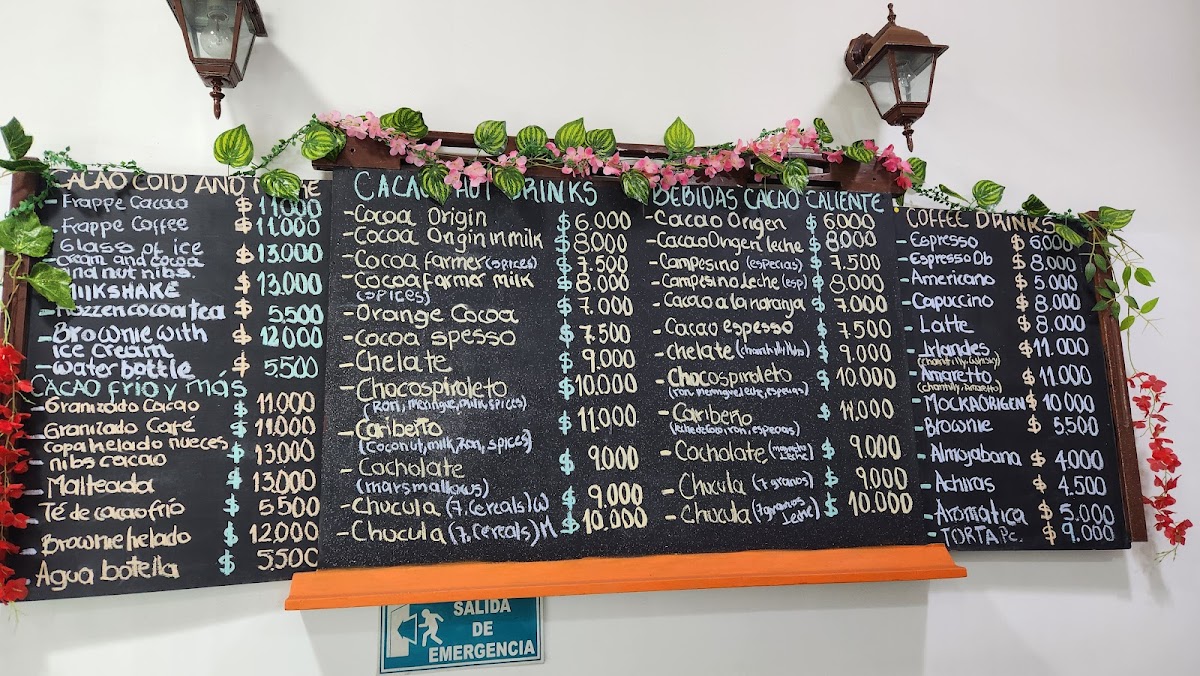 CACAO COLD AND
Frappe Cacao $ 11.000
Frappe Coffee $ 11.000
Glass of ice $ 13.000
cream and cocoa
and nut nibs.
MILKSHAKE $ 13.000
Frozzen cocoa tea $ 5.500
Brownie with $ 12.000
ice cream
water bottle $ 5.500
CACAO frío y más
Granizado Cacao $ 11.000
Granizado Café $ 11.000
copa helado nueces $ 13.000
nibs cacao
Malteada $ 13.000
Té de cacao frío $ 5.500
Brownie helado $ 12.000
Agua botella $ 5.500
CACAO HOT DRINKS
-Cocoa Origin $ 6.000
-Cocoa Origin in milk $ 8.000
-Cocoa farmer (spices) $ 7.500
-Cocoa farmer milk $ 8.000
(spices)
-Orange Cocoa $ 7.000
-Cocoa spesso $ 7.500
-Chelate $ 9.000
-Chocospiroleto $ 10.000
(Ron, meringue, milk, spices)
-Caribeño $ 11.000
(Coconut, milk, Ron, spices)
-Cocholate $ 9.000
(marsmallows)
-Chucula (7. cereals) W $ 9.000
-Chucula (7. cereals) M $ 10.000
BEBIDAS CACAO CALIENTE
-Cacao Origen $ 6.000
-Cacao Origen leche $ 8.000
-Campesino (especias) $ 7.500
-Campesino Leche (esp) $ 8.000
-Cacao a la naranja $ 7.000
-Cacao espesso $ 7.500
-Chelate $ 9.000
-Chocospiroleto $ 10.000
(ron, merengue leche, especias)
-Caribeño $ 11.000
(leche de coco, ron, especias)
-Cocholate $ 9.000
-Chucula (7 granos) $ 9.000
-Chucula (7 granos $ 10.000
Leche)
COFFEE DRINKS
-Espresso $ 6.000
-Espresso Db $ 8.000
Americano $ 5.000
-Capuccino $ 8.000
-Latte $ 8.000
-Irlandes $ 11.000
(chantilly, whisky)
-Amaretto $ 11.000
(chantilly, Amaretto)
-MOCKAORIGEN $ 10.000
-Brownie $ 5.500
-Almojabana $ 4.000
-Achiras $ 4.500
-Aromatica $ 5.000
-TORTA Pc. $ 9.000
SALIDA
DE
EMERGENCIA